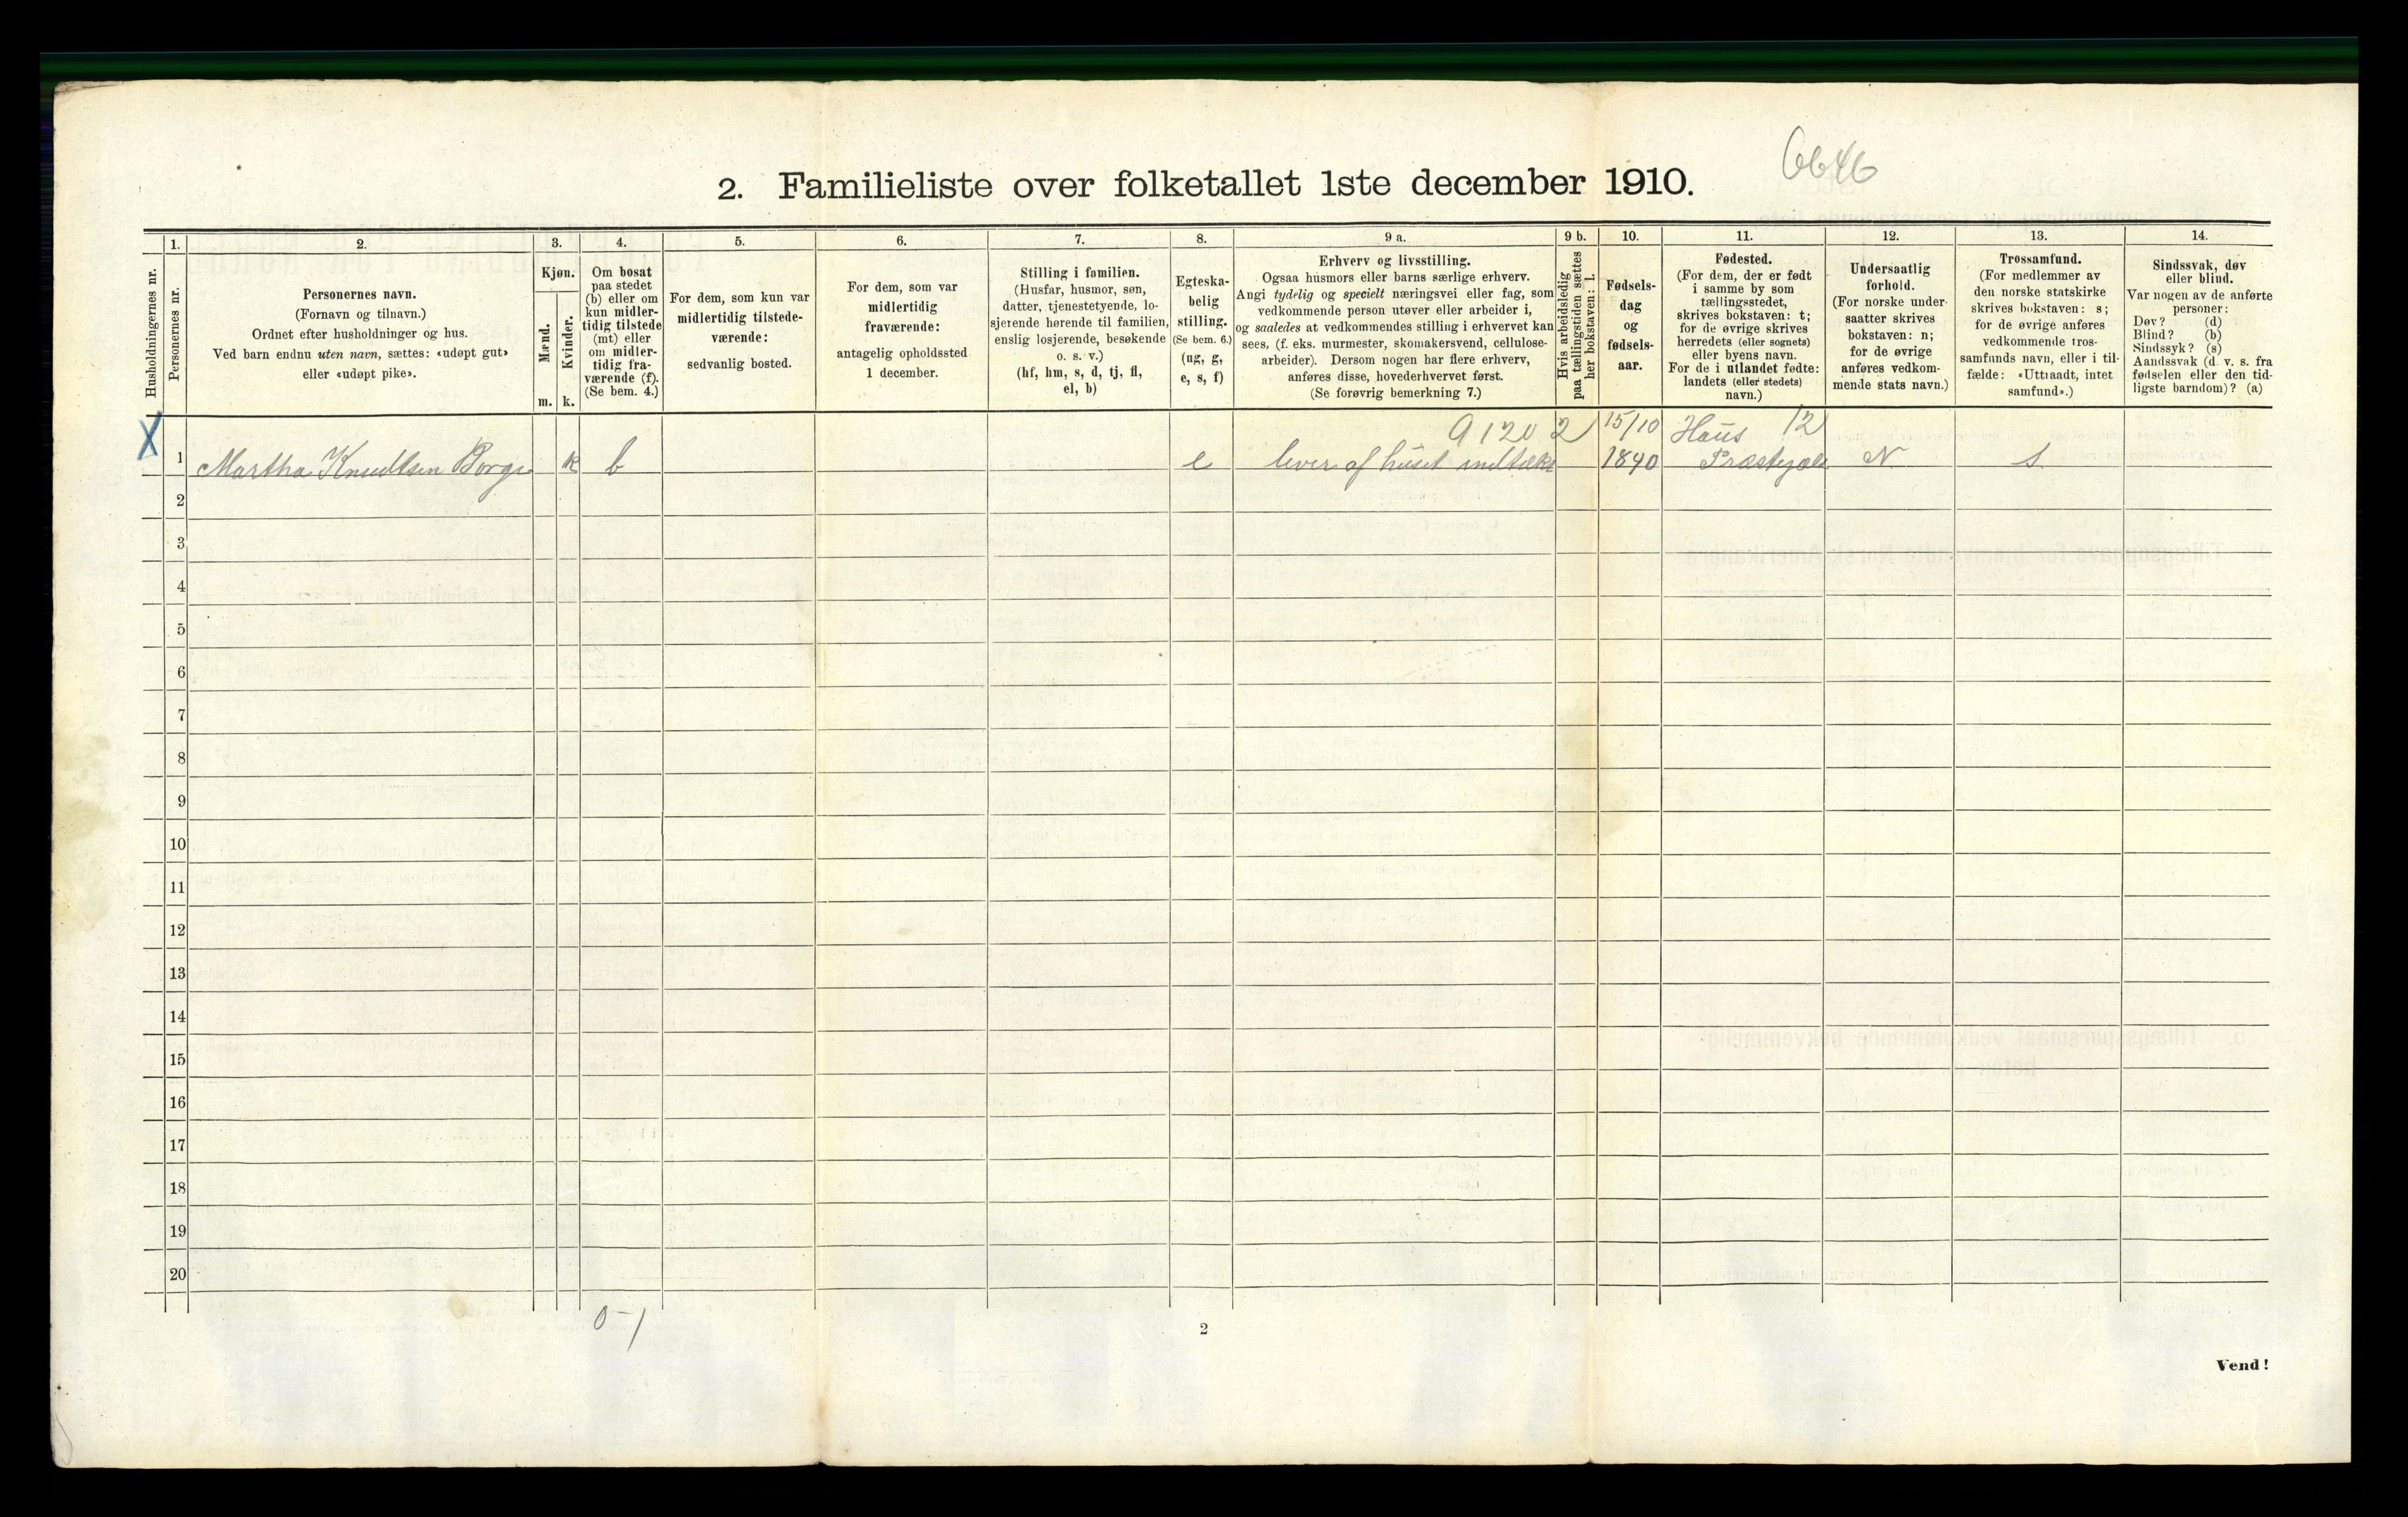 6646
2. Familieliste over folketallet 1ste december 1910.
Husholdningernes nr.
1.
Personernes nr.
2.
Personernes navn.
(Fornavn og tilnavn.)
Ordnet efter husholdninger og hus.
Ved barn endnu uten navn, sættes: «udøpt gut»
eller «udøpt pike».
3.
Kjøn.
Mænd.
Kvinder.
m. k.
4.
Om bosat
paa stedet
(b) eller om
kun midler-
tidig tilstede
(mt) eller
om midler-
tidig fra-
værende (f).
(Se bem. 4.)
5.
For dem, som kun var
midlertidig tilstede-
værende:
sedvanlig bosted.
6.
For dem, som var
midlertidig
fraværende:
antagelig opholdssted
1 december.
7.
Stilling i familien.
(Husfar, husmor, søn,
datter, tjenestetyende, lo-
sjerende hørende til familien,
enslig losjerende, besøkende
o. s. v.)
(hf, hm, s, d, tj, fl,
el, b)
8.
Egteska-
belig
stilling.
(Se bem. 6.)
(ug, g,
e, s, f)
9 a.
Erhverv og livsstilling.
Ogsaa husmors eller barns særlige erhverv.
Angi tydelig og specielt næringsvei eller fag, som
vedkommende person utøver eller arbeider i,
og saaledes at vedkommendes stilling i erhvervet kan
sees, (f. eks. murmester, skomakersvend, cellulose-
arbeider). Dersom nogen har flere erhverv,
anføres disse, hovederhvervet først.
(Se forøvrig bemerkning 7.)
9 b.
Hvis arbeidsledig
paa tællingstiden sættes
her bokstaven: l.
10.
Fødsels-
dag
og
fødsels-
aar.
11.
Fødested.
(For dem, der er født
i samme by som
tællingsstedet,
skrives bokstaven: t;
for de øvrige skrives
herredets (eller sognets)
eller byens navn.
For de i utlandet fødte:
landets (eller stedets)
navn.)
12.
Undersaatlig
forhold.
(For norske under-
saatter skrives
bokstaven: n;
for de øvrige
anføres vedkom-
mende stats navn.)
13.
Trossamfund.
(For medlemmer av
den norske statskirke
skrives bokstaven: s;
for de øvrige anføres
vedkommende tros-
samfunds navn, eller i til-
fælde: «Uttraadt, intet
samfund».)
14.
Sindssvak, døv
eller blind.
Var nogen av de anførte
personer:
Døv? (d)
Blind? (b)
Sindssyk? (s)
Aandssvak (d. v. s. fra
fødselen eller den tid-
ligste barndom)? (a)
X 9120 2 15/10 Haus 12
1 Martha Knudtsen Borge k b e lever af huset indtækt 1840 Præstegæld N s
2
3
4
5
6
7
8
9
10
11
12
13
14
15
16
17
18
19
20
0-1
2
Vend!